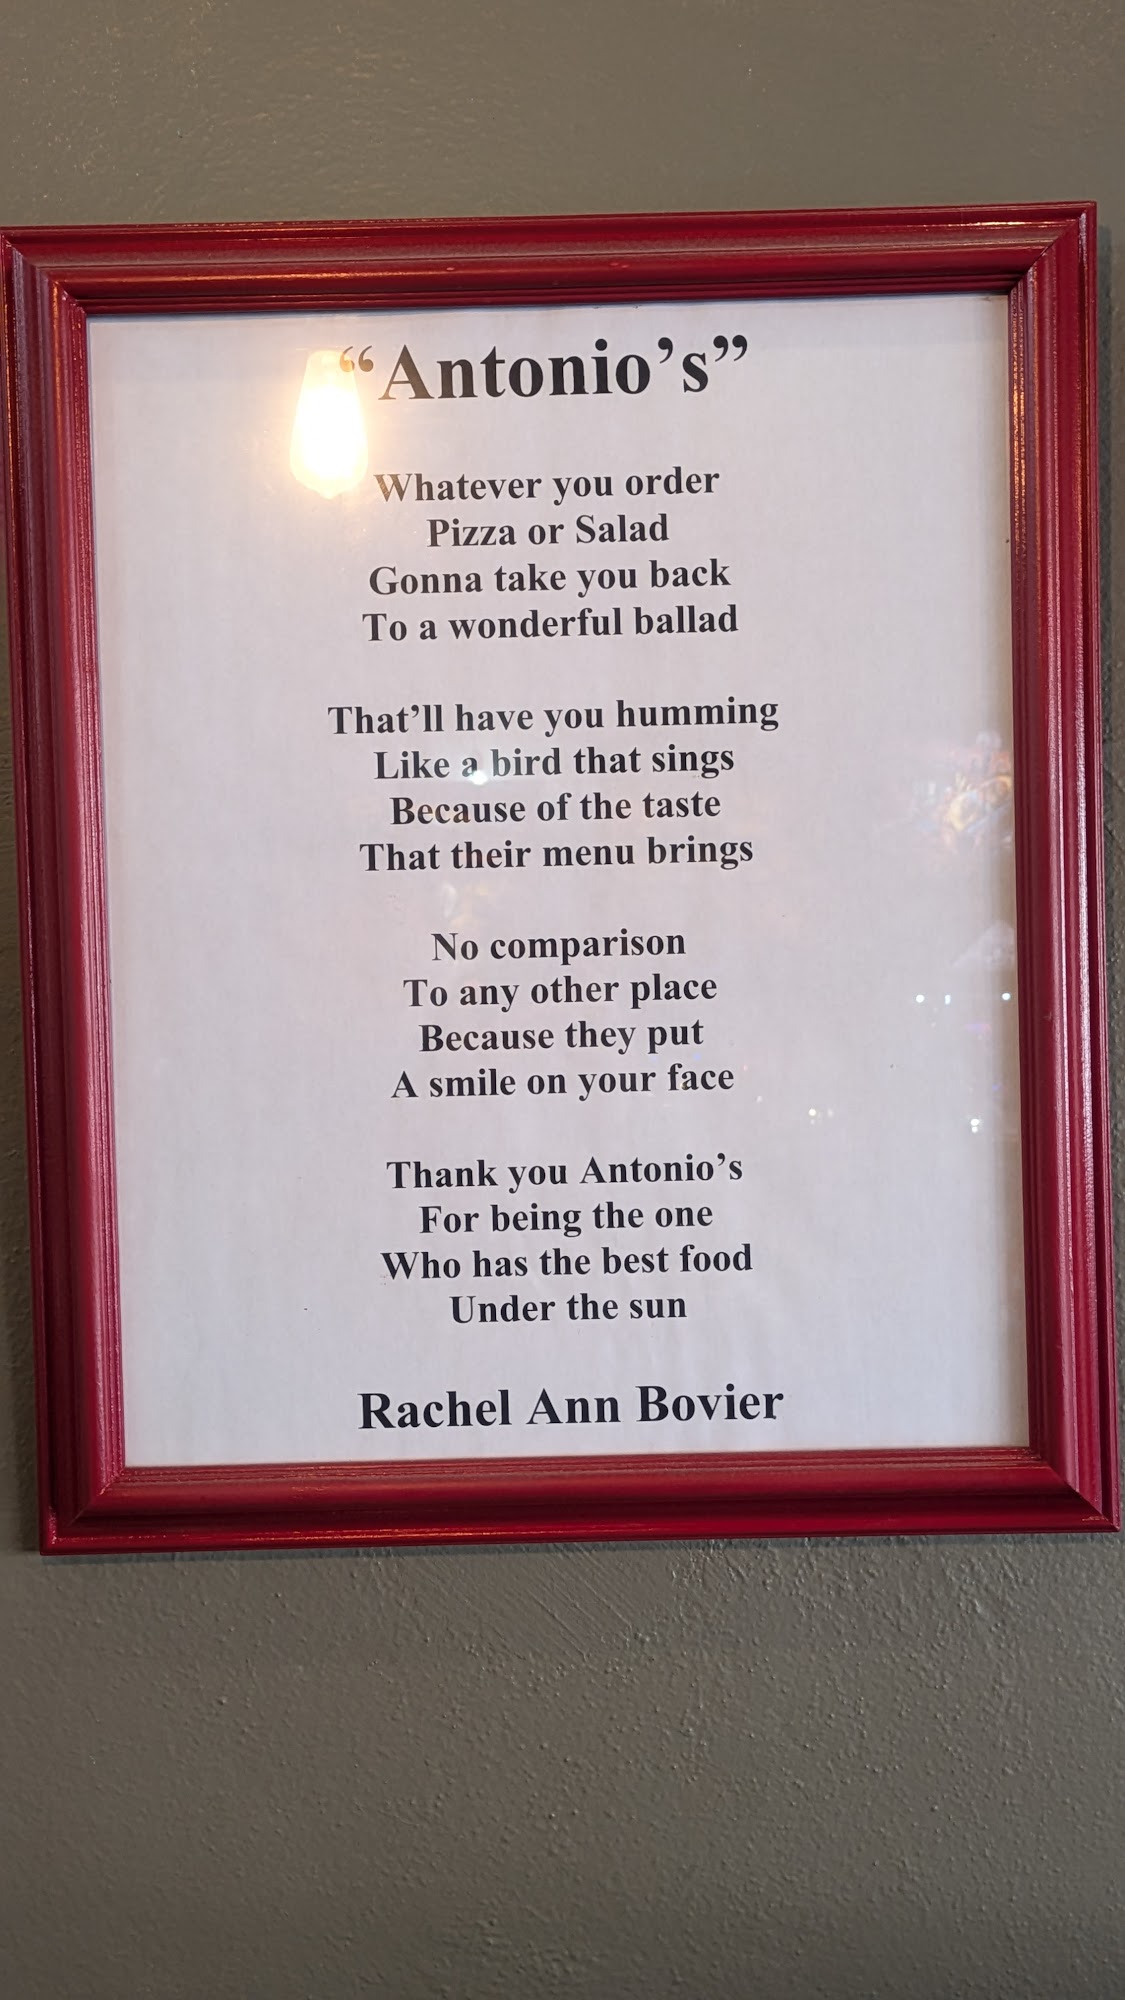 “Antonio’s”
Whatever you order
Pizza or Salad
Gonna take you back
To a wonderful ballad
That’ll have you humming
Like a bird that sings
Because of the taste
That their menu brings
No comparison
To any other place
Because they put
A smile on your face
Thank you Antonio’s
For being the one
Who has the best food
Under the sun
Rachel Ann Bovier